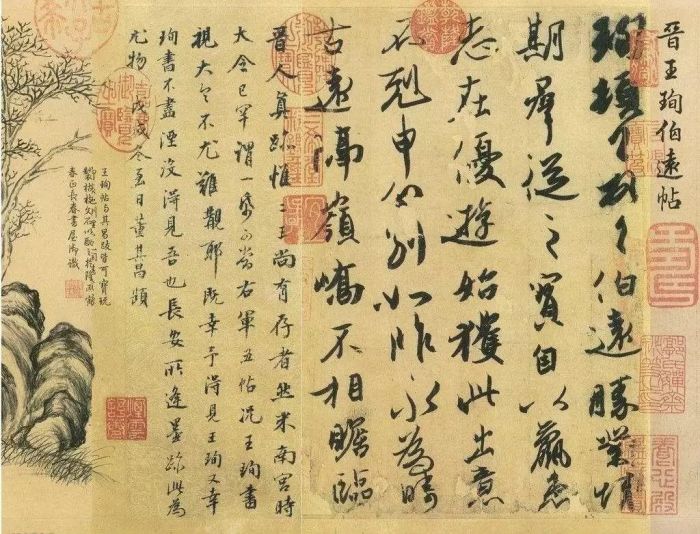 晉王珣伯遠帖
珣頓首頓首伯遠勝業情
期群從之寶自以羸患
志在優遊始獲此出意
不剋申分別如昨永為疇
古遠隔嶺嶠不相瞻臨
晉人真跡惟二王尚有存者然米南宮時
大令已罕謂一紙可當右軍五帖況王珣書
視大令不尤難覯耶既幸予得見王珣又幸
珣書不盡湮沒得見吾也長安所逢墨跡此為
尤物戊戌冬至日董其昌題
王珣帖与其昌跋皆可寶玩
春正長春書屋御識